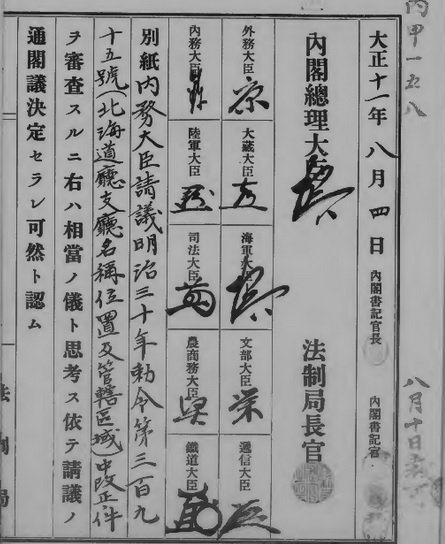 丙甲一五八
大正十一年八月四日
内閣書記官長
内閣書記官
八月十日
内閣總理大臣
法制局長官
外務大臣
大藏大臣
海軍大臣
文部大臣
遞信大臣
内務大臣
陸軍大臣
司法大臣
農商務大臣
鐵道大臣
別紙内務大臣請議明治三十年勅令第三百九
十五號(北海道廳支廳名稱位置及管轄區域)中改正件
ヲ審査スルニ右ハ相當ノ儀ト思考ス依テ請議ノ
通閣議決定セラレ可然ト認ム
法制局